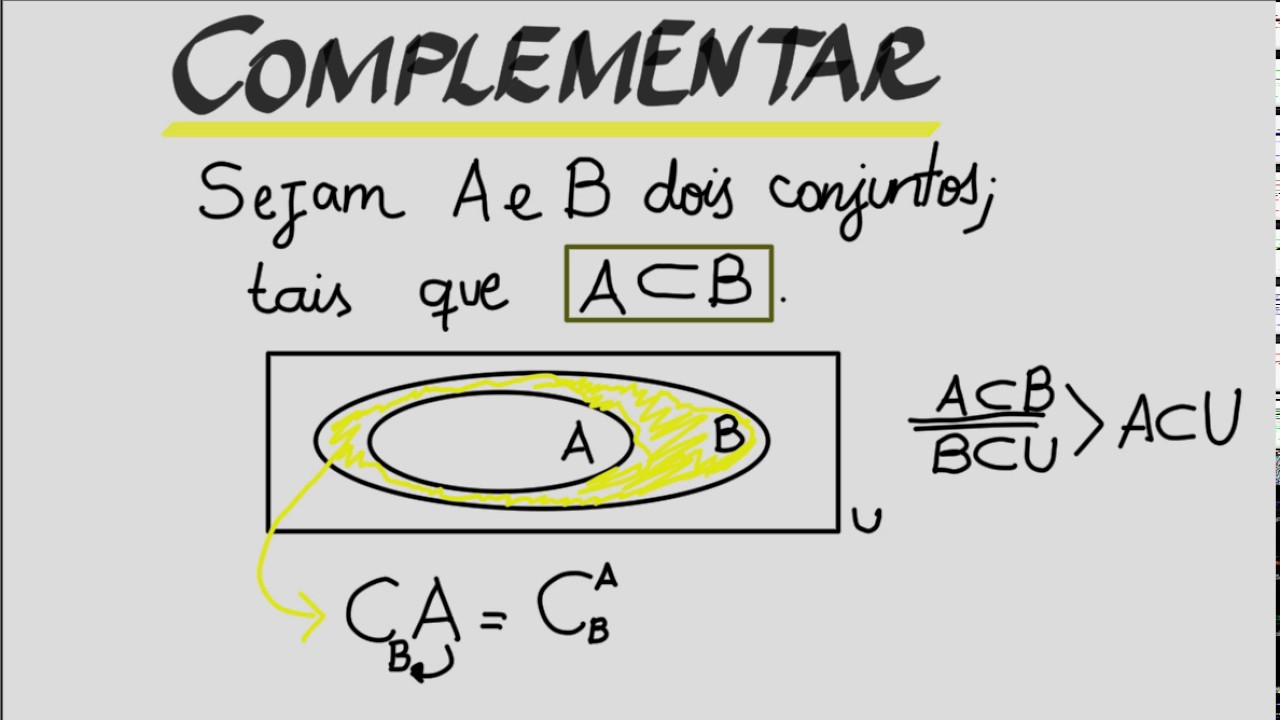 COMPLEMENTAR
Sejam A e B dois conjuntos;
tais que A⊂B.
A B
U
A⊂B
B⊂U
> A⊂U
C_B A = C_B^A